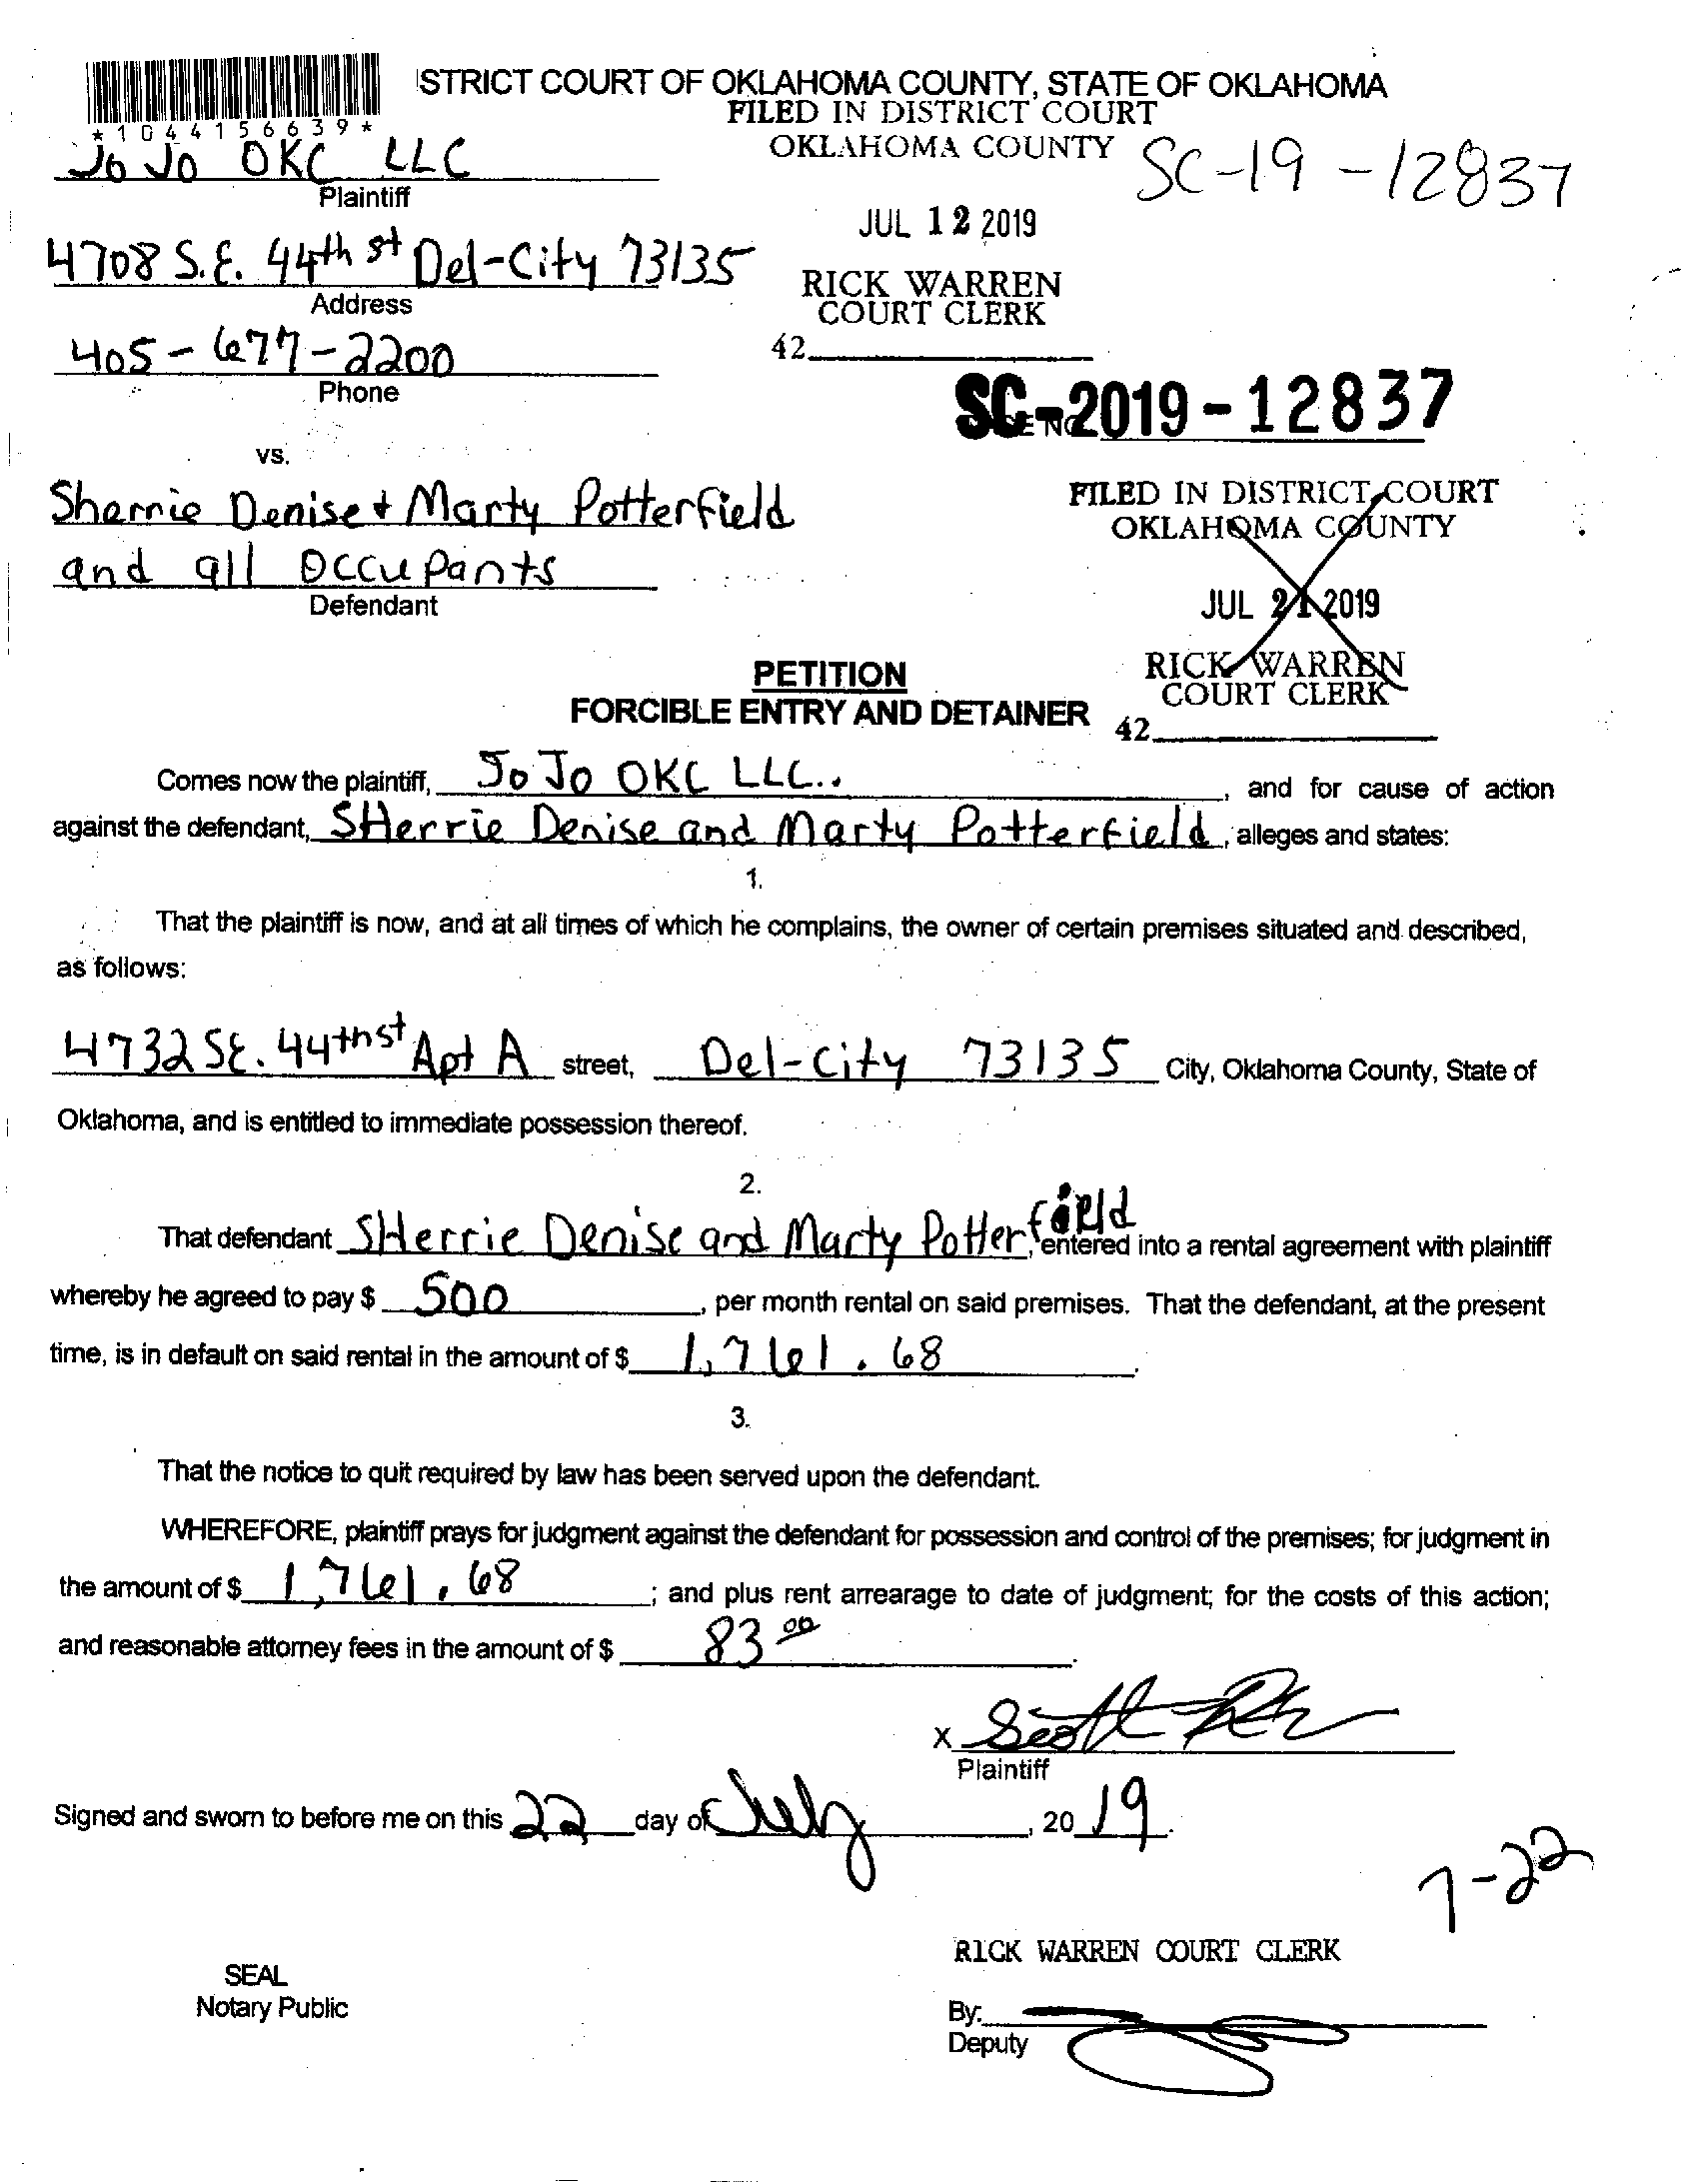 STRICT COURT OF OKLAHOMA COUNTY, STATE OF OKLAHOMA
FILED IN DISTRICT COURT
OKLAHOMA COUNTY
*1044156639*
SC-19-12837
JoJo OKC LLC
Plaintiff
JUL 12 2019
4708 S.E. 44th st Del-City 73135
Address
RICK WARREN
COURT CLERK
405-677-2200
Phone
42
SC-2019-12837
vs.
Sherrie Denise + Marty Potterfield
and all OccuPants
Defendant
FILED IN DISTRICT COURT
OKLAHOMA COUNTY
JUL 2 2019
RICK WARREN
COURT CLERK
42
PETITION
FORCIBLE ENTRY AND DETAINER
Comes now the plaintiff, JoJo OKC LLC.., and for cause of action
against the defendant, SHerrie Denise and Marty Potterfield, alleges and states:
1.
That the plaintiff is now, and at all times of which he complains, the owner of certain premises situated and described,
as follows:
4732 SE. 44th st Apt A street, Del-City 73135 City, Oklahoma County, State of
Oklahoma, and is entitled to immediate possession thereof.
2.
That defendant SHerrie Denise and Marty Potterfield, entered into a rental agreement with plaintiff
whereby he agreed to pay $ 500, per month rental on said premises. That the defendant, at the present
time, is in default on said rental in the amount of $ 1,761.68.
3.
That the notice to quit required by law has been served upon the defendant.
WHEREFORE, plaintiff prays for judgment against the defendant for possession and control of the premises; for judgment in
the amount of $ 1,761.68; and plus rent arrearage to date of judgment; for the costs of this action;
and reasonable attorney fees in the amount of $ 83 00.
X Scott
Plaintiff
Signed and sworn to before me on this 22 day of July, 20 19.
7-22
RICK WARREN COURT CLERK
SEAL
Notary Public
By:
Deputy